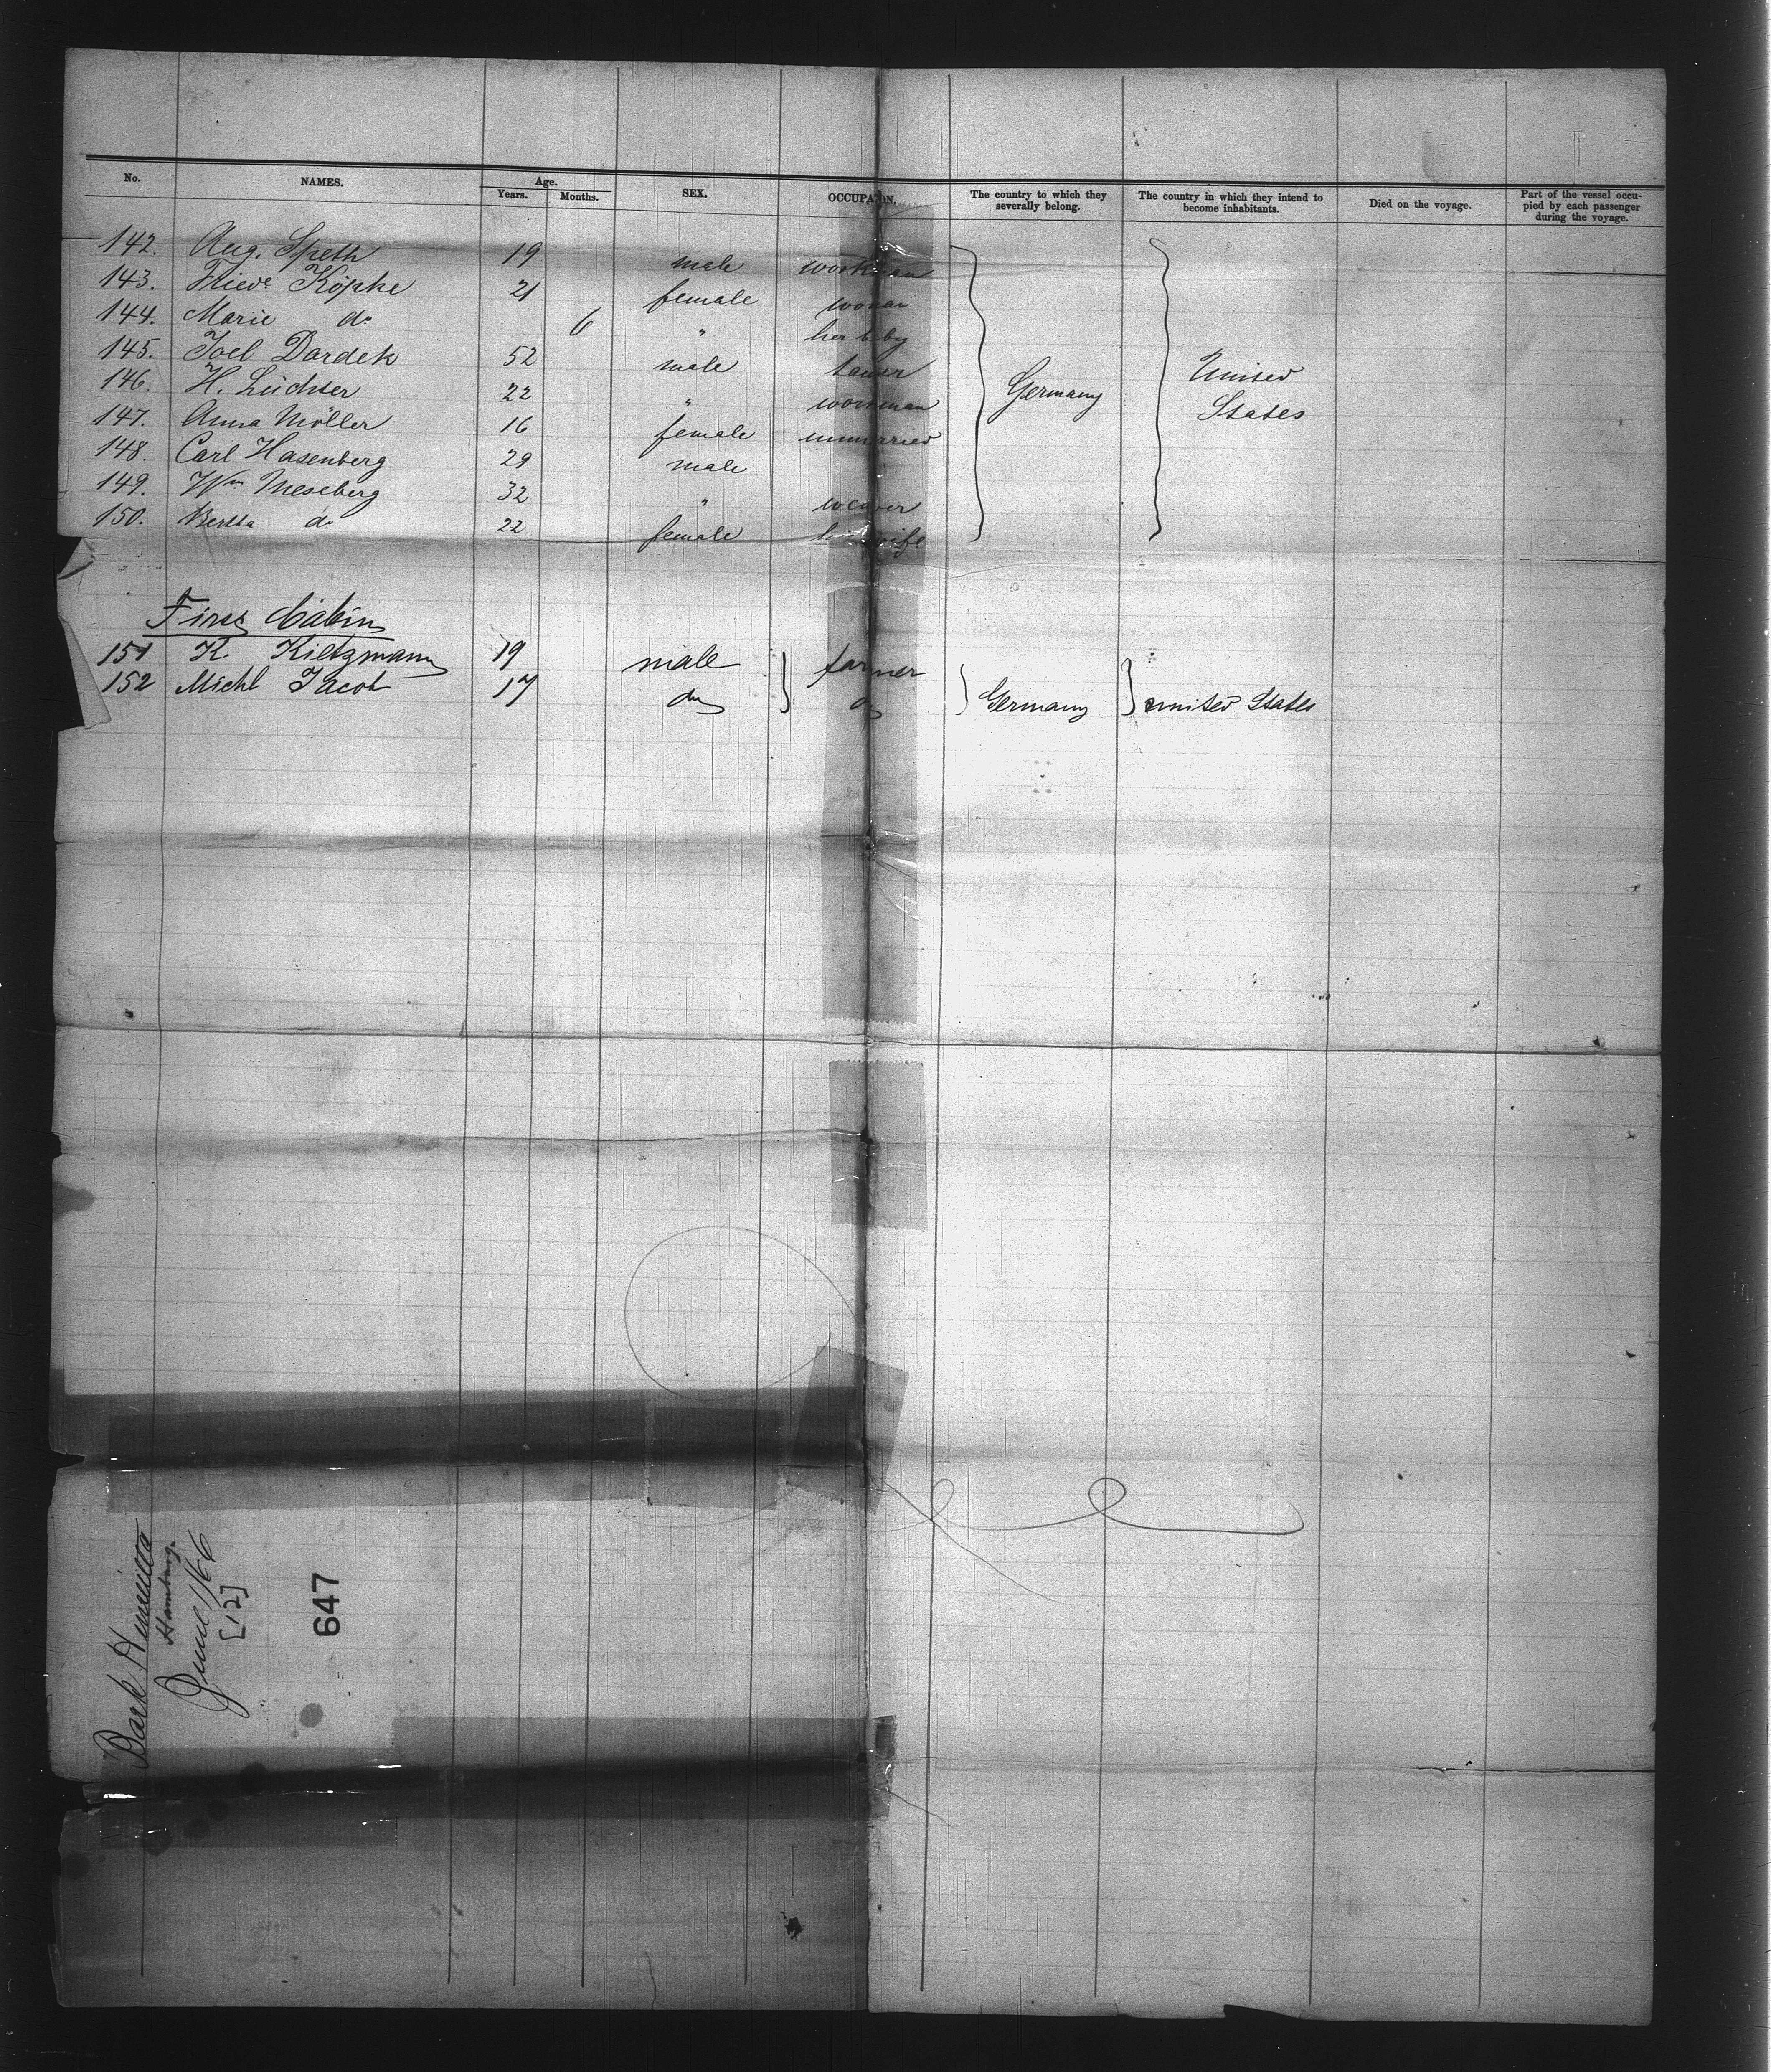 No. NAMES. Age. Years. Months. SEX. OCCUPATION. The country to which they severally belong. The country in which they intend to become inhabitants. Died on the voyage. Part of the vessel occupied by each passenger during the voyage.
142. Aug. Speth 19 male workman
143. Köpke 21 female woman
144. Marie do 6 " her baby
145. Joel Dardek 52 male
146. H. Lüchser 22 " workman
147. Anna Möller 16 female unmarried
148. Carl Hasenberg 29 male
149. Wm Meseberg 32 " weaver
150. Bertha do 22 female his wife
Germany
United States
First Cabin
151 K. Kietzmann 19 male farmer
152 Michl Jacob 17 do do Germany united States
Bark
Hamburg.
June 1/66
[12]
647